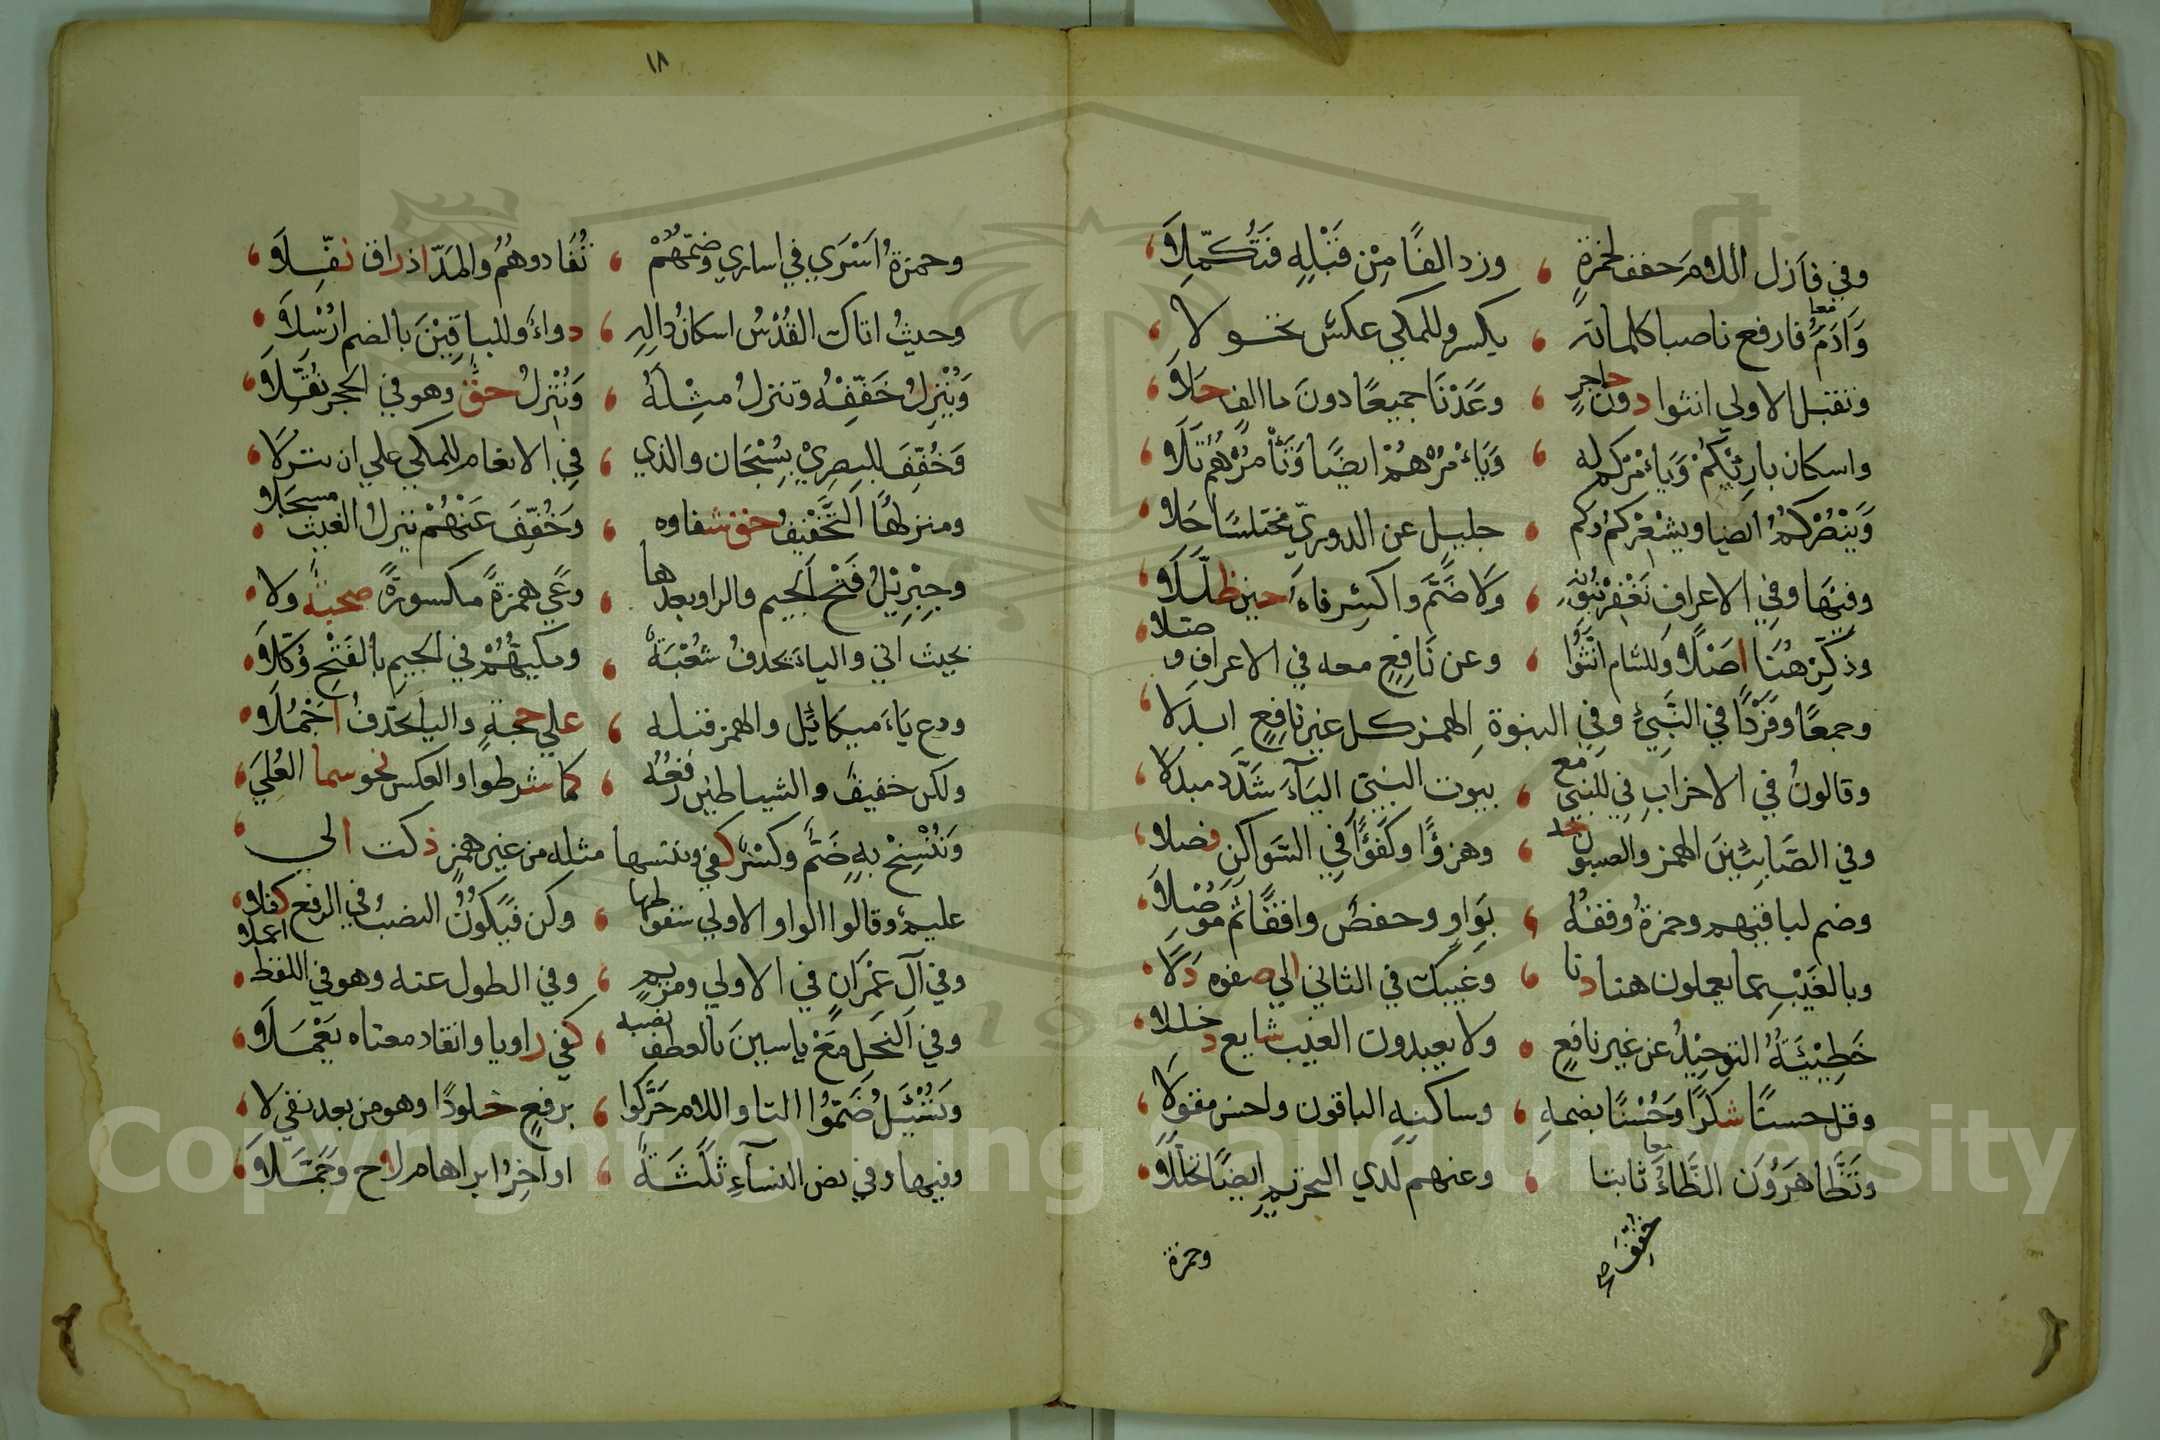 وفي فازل اللام خفف لحمزة ، وزد الفا من قبله فتكملا ،
وآدم معا فارفع ناصبا كلماته ، بكسر وللمكي عكس تحولا ،
وتقبل الاولي انثوا دون حاجز ، وعدنا جميعا دون ما الف حلا ،
واسكان بارئكم ويامركم له ، ويامرهم ايضا وتامرهم تلا ،
وينصركم ايضا ويشعركم وكم ، جليل عن الدوري مختلسا جلا ،
وفيها وفي الاعراف نغفر بنونه ، ولا ضم واكسر فاه حين ظللا ،
وذكر هنا اصلا وللشام انثوا ، وعن نافع معه في الاعراف وصلا ،
وجمعا وفردا في النبئ وفي النبوة الهمز كل غير نافع ابدلا ،
وقالون في الاحزاب في للنبي مع ، بيوت النبي الياء شدد مبدلا ،
وفي الصابئين الهمز والصابئون خذ ، وهزؤا وكفؤا في السواكن فصلا ،
وضم لباقيهم وحمزة وقفه ، بواو وحفص واقفا ثم موصلا ،
وبالغيب عما يعملون هنا دنا ، وغيبك في الثاني الي صفوه دلا ،
خطيئته التوحيد عن غير نافع ، ولا يعبدون الغيب شايع دخللا ،
وقل حسنا شكرا وحسنا بضمه ، وساكنه الباقون واحسن مقولا ،
وتظاهرون الظاء خفف ثابتا ، وعنهم لدي التحريم ايضا تحللا ،
خفف صح
وحمزة
١٨
وحمزة اسري في اساري وضمهم ، تفادوهم والمد اذ راق نفلا ،
وحيث اتاك القدس اسكان داله ، دواء وللباقين بالضم ارسلا ،
وينزل خففه وتنزل مثله ، وننزل حق وهو في الحجر ثقلا ،
وخفف للبصري بسبحان والذي ، في الانعام للمكي علي ان ينزلا ،
ومنزلها التخفيف حق شفاوه ، وخفف عنهم ينزل الغيث مسجلا ،
وجبريل فتح الجيم والرا وبعدها ، وعي همزة مكسورة صحبة ولا ،
بحيث اتي والياء يحذف شعبة ، ومكيهم في الجيم بالفتح وكلا ،
ودع ياء ميكائيل والهمز قبله ، علي حجة واليا يحذف اجملا ،
ولكن خفيف والشياطين رفعه ، كما شرطوا والعكس نحو سما العلي ،
وننسخ به ضم وكسر كفي وننسها مثله من غير همز ذكت الي ،
عليم وقالوا الواو الاولي سقوطها ، وكن فيكون النصب في الرفع كفلا ،
وفي آل عمران في الاولي ومريم ، وفي الطول عنه وهو في اللفظ اعملا ،
وفي النحل مع ياسين بالعطف نصبه ، كفي راويا وانقاد معناه يعملا ،
وتسئل ضموا التا واللام حركوا ، برفع خلودا وهو من بعد نفي لا ،
وفيها وفي نص النساء ثلثة ، اواخر ابراهام لاح وجملا ،
Copyright © King Saud University